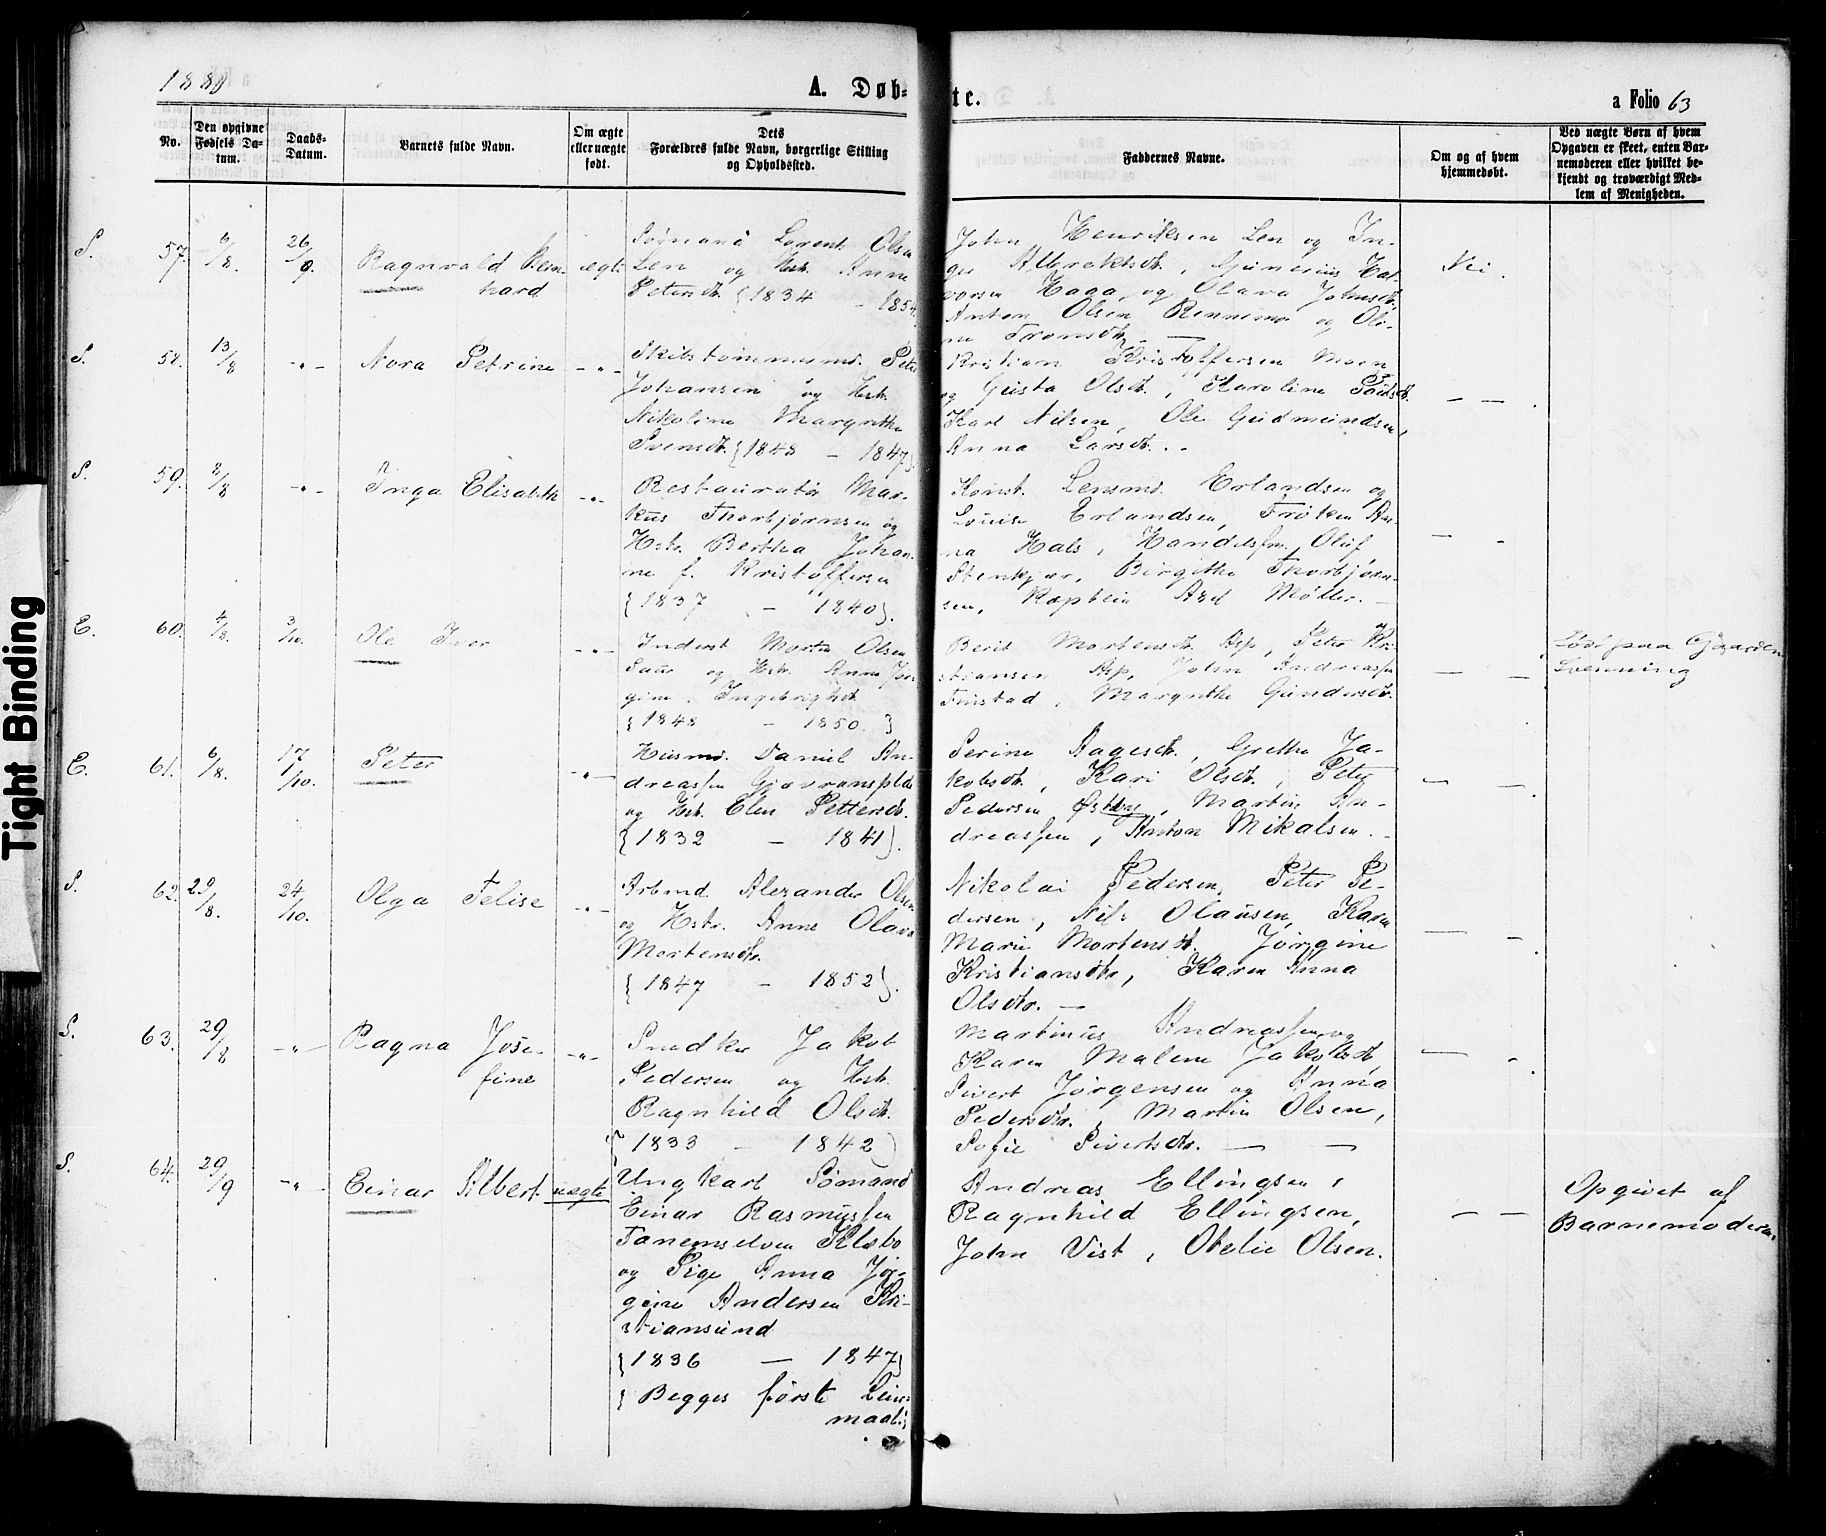 1880 A. Døb-
te. a Folio 63
No.
Den opgivne Fødsels Da-
tum.
Daabs-
Datum.
Barnets fulde Navn.
Om ægte
eller uægte
født.
Dets
Forældres fulde Navn, borgerlige Stilling
og Opholdssted.
Faddernes Navne.
Om og af hvem
hjemmedøbt.
Ved uægte Børn af hvem
Opgaven er skeet, enten Bar-
nemoderen eller hvilket be-
kjendt og troværdigt Med-
lem af Menigheden.
S. 57. 6/8. 26/9. Ragnvald Bern-
hard
ægte
Lorents Olsen
Len og Hstr. Anne
Petersdtr. {1834 - 1854
John Henriksen Len og In-
ger Albrektsdtr., Gunerius Hal-
vorsen Haga, og Olava Johnsdtr.
Anton Olsen Rennemo og Oli-
ne Tronsdtr. —
Nei.
S. 58. 13/8 -"- Nora Petrine -"-
Skibstømmermd. Peter
Johansen og Hstr.
Nikoline Margrethe
Svensdtr. {1843 - 1847}.
Kristian Kristoffersen Moen
og Gusta Olsdtr., Karoline Paulsdtr.
Karl Nilsen, Ole Gudmundsen,
Anna Larsdtr. .
— — .
S. 59. 8/8 -"- Inga Elisabeth -"-
Restauratør Mar-
kus Thorbjørnsen og
Hstr. Bertha Johan-
ne f. Kristoffersen
{1837 - 1840}.
Konst. Lensmd. Erlandsen og
Louise Erlandsen, Frøken An-
na Hals, Handelsfm. Oluf
Stenkjær, Birgithe Thorbjørn-
sen, Kaptein Axel Møller. —
— -
E. 60. 4/8. 3/10. Ole Iver -"-
Inderst Martin Olsen
Saur og Hstr. Anne Jør-
gine Ingebrigtsdtr.
{1848 - 1850.}
Berit Mortensdtr. Asp, Peter Kri-
stiansen Asp, John Andreassen
Finstad, Margrethe Gundersdtr.
— -
Født paa Gaarden
Svenning
E. 61. 6/8. 17/10. Peter -"-
Husmd. Daniel An-
dreassen Gjævranspld.
og Hstr. Elen Pettersdtr.
{1832 - 1841}.
Serine Aagesdtr., Grethe Ja-
kobsdtr., Kari Olsdtr., Peter
Pedersen Østens, Martin An-
dreassen, Anton Mikalsen. -
— - .
S. 62. 29/8. 24/10. Olga Felise -"-
Arbmd. Alexander Olsen
og Hstr. Anne Olava
Mortensdtr.
{1847 - 1852}.
Nikolai Pedersen, Peter Pe-
dersen, Nils Olausen, Karen
Marie Mortensdtr. Jørgine
Kristiansdtr, Karen Anna
Olsdtr. —
— - .
S. 63. 29/8 -"- Ragna Jose-
fine
-"-
Snedker Jakob
Pedersen og Hstr.
Ragnhild Olsdtr.
{1833 - 1842}
Martinus Andreassen og
Karen Malene Jakobsdtr,
Sivert Jørgensen og Anna
Pedersdtr. Martin Olsen,
Sofie Sivertsdtr. — —
— - .
S. 64. 29/9 -"- Einar Albert uægte
Ungkarl Sømand
Einar Rasmussen
Tanemselven Klæbo
og Pige Anna Jør-
gine Andersen Kri-
stiansund
{1836 — 1847}
{Begges første Leier-
maal.}
Andreas Ellingsen,
Ragnhild Ellingsen,
John Vist, Otelie Olsen.
— —
Opgivet af
Barnemoderen
Tight Binding